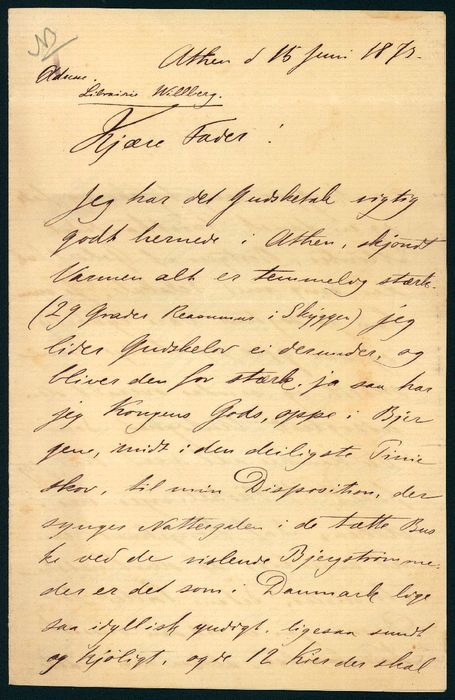 NB
Athen d 15 Juni 187
Adresse.
Librairie Wilberg.
Kjære Fader!
Jeg har det Gudsketak rigtig
godt hernede i Athen, skjöndt
Varmen alt er temmelig stærk.
(29 Grader Reaumur i Skyggen) jeg
lider Gudskelov ei derunder, og
bliver den for stærk, ja saa har
jeg Kongens Gods, oppe i Bjer
gene, midt i den deiligste Pinie
skov, til min Disposition, der
synger Nattergalen i de tætte Bus
ke ved de rislende Bjergstrømme.
der er det som i Danmark lige
saa idyllisk yndigt, ligesaa sundt
og kjöligt, og de 12 der skal